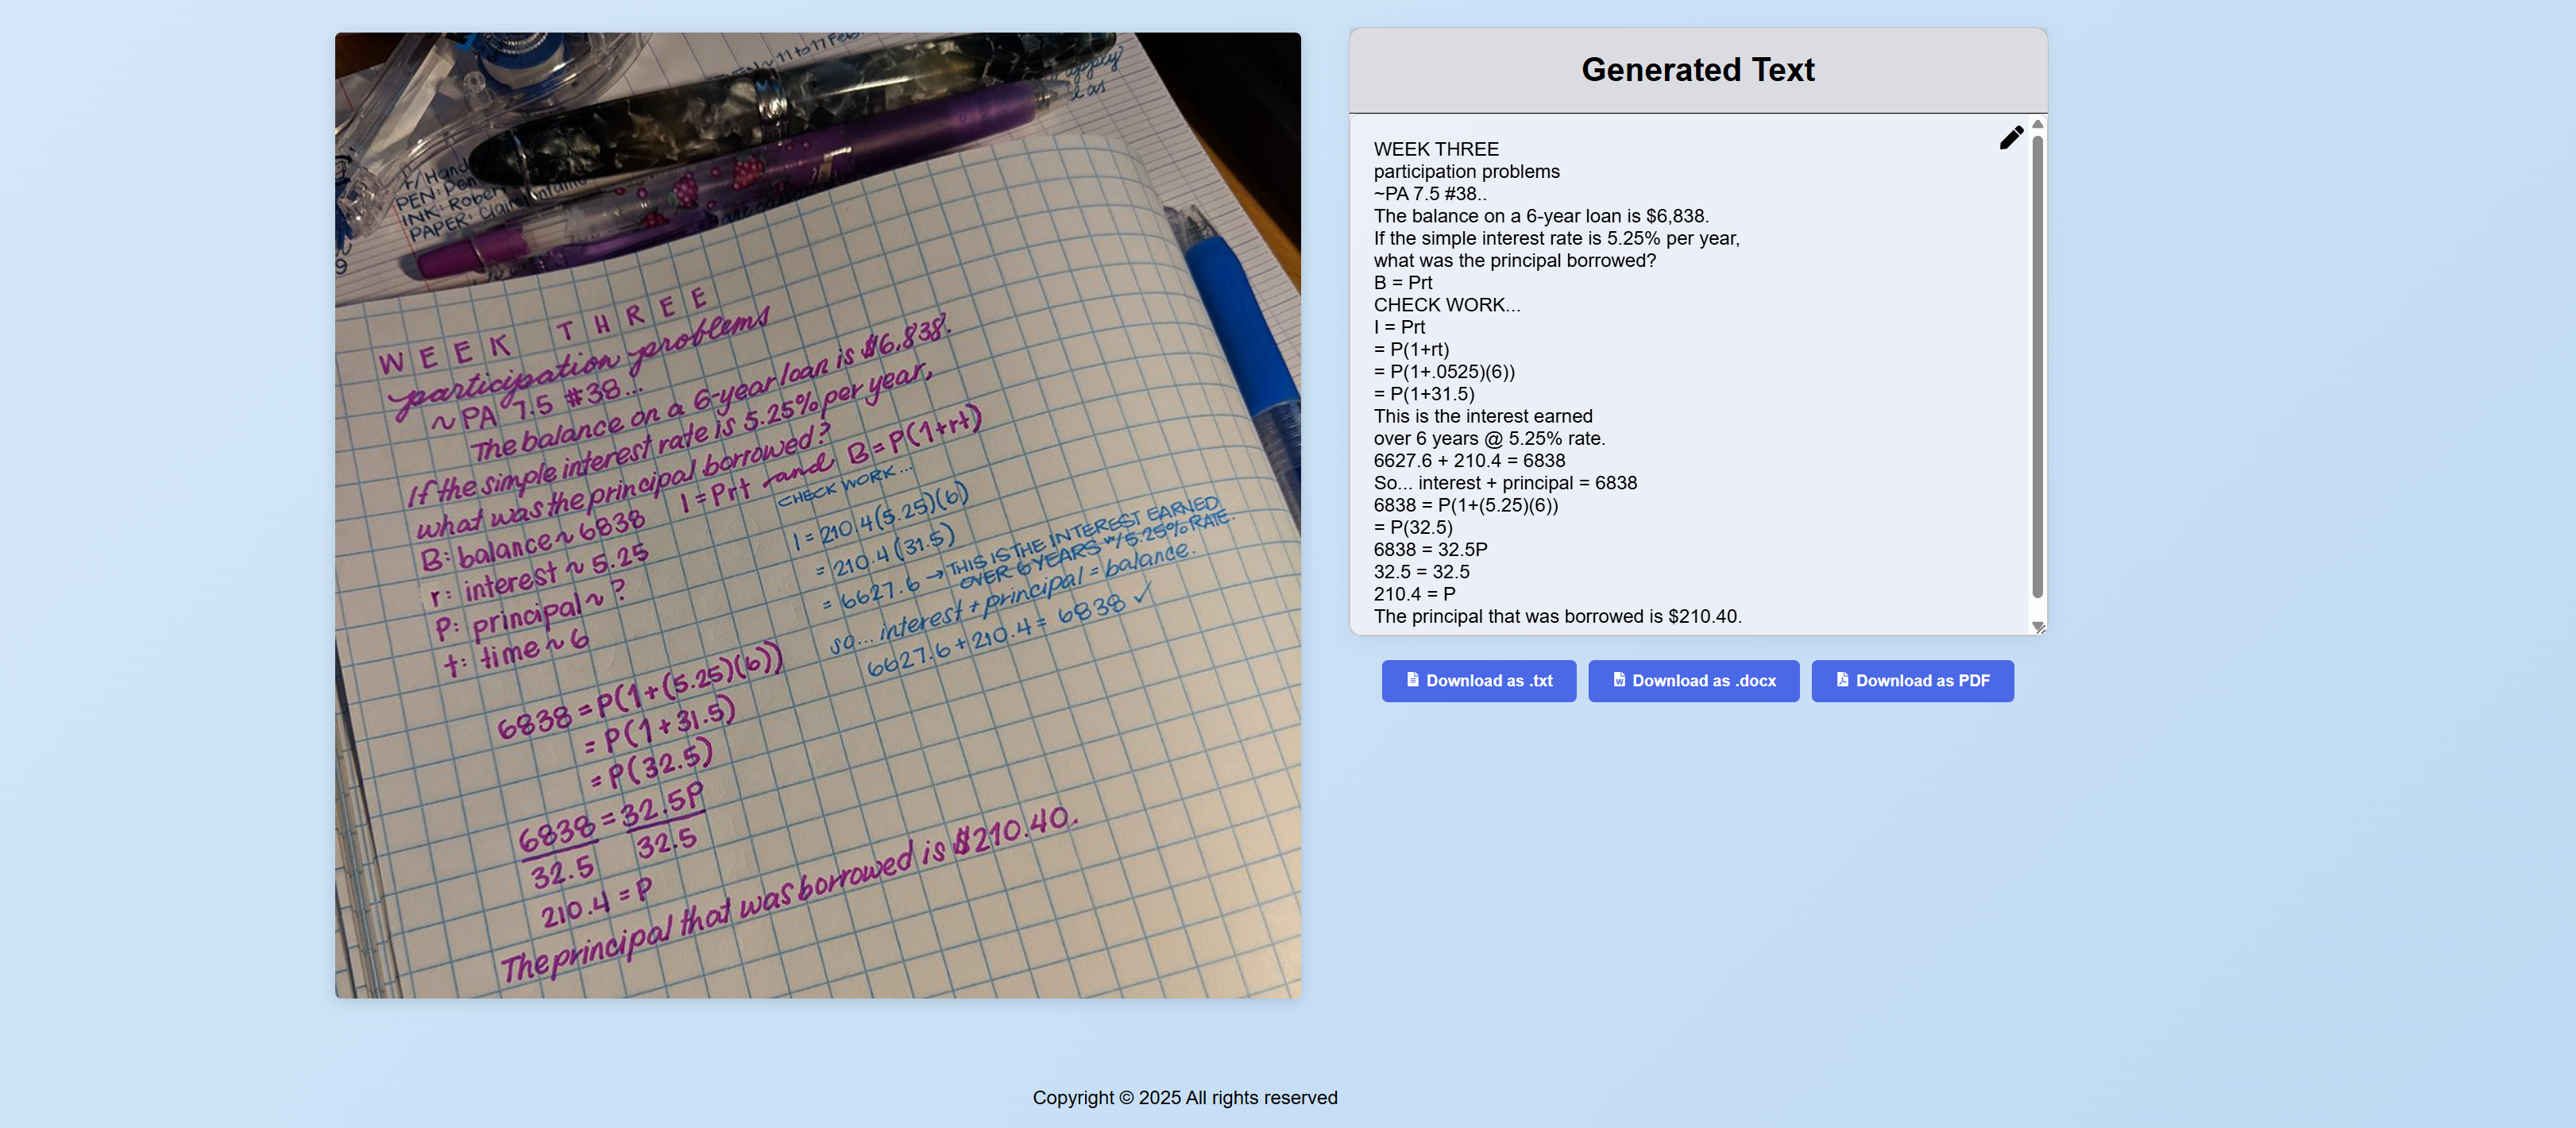 EN ~ 11 to 17 Feb.
apply
l as
F/Hand
PEN: Pen
INK: Rober
PAPER: Clairefontaine
9
WEEK THREE
participation problems
~PA 7.5 #38...
The balance on a 6-year loan is $6,838.
If the simple interest rate is 5.25% per year,
what was the principal borrowed?
B: balance ~ 6838
I = Prt and B = P(1+rt)
r: interest ~ 5.25
P: principal ~ ?
t: time ~ 6
CHECK WORK...
I = 210.4(5.25)(6)
= 210.4(31.5)
= 6627.6 → THIS IS THE INTEREST EARNED
OVER 6 YEARS w/ 5.25% RATE.
so... interest + principal = balance.
6627.6 + 210.4 = 6838 ✓
6838 = P(1+(5.25)(6))
= P(1+31.5)
= P(32.5)
6838 = 32.5P
32.5 32.5
210.4 = P
The principal that was borrowed is $210.40.
Generated Text
WEEK THREE
participation problems
~PA 7.5 #38..
The balance on a 6-year loan is $6,838.
If the simple interest rate is 5.25% per year,
what was the principal borrowed?
B = Prt
CHECK WORK...
I = Prt
= P(1+rt)
= P(1+.0525)(6))
= P(1+31.5)
This is the interest earned
over 6 years @ 5.25% rate.
6627.6 + 210.4 = 6838
So... interest + principal = 6838
6838 = P(1+(5.25)(6))
= P(32.5)
6838 = 32.5P
32.5 = 32.5
210.4 = P
The principal that was borrowed is $210.40.
Download as .txt
Download as .docx
Download as PDF
Copyright © 2025 All rights reserved